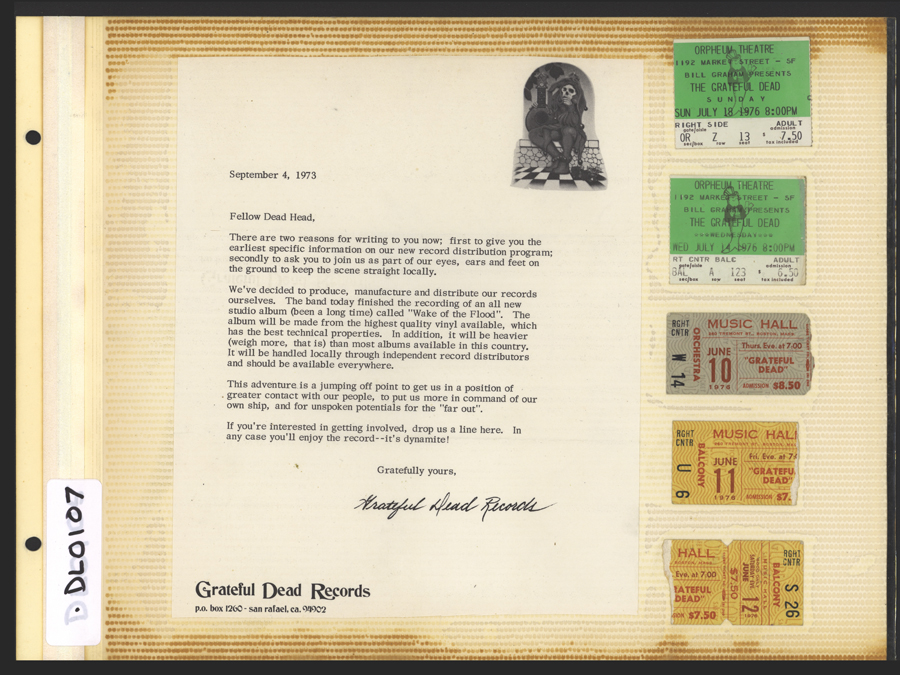 September 4, 1973
Fellow Dead Head,
There are two reasons for writing to you now; first to give you the
earliest specific information on our new record distribution program;
secondly to ask you to join us as part of our eyes, ears and feet on
the ground to keep the scene straight locally.
We've decided to produce, manufacture and distribute our records
ourselves. The band today finished the recording of an all new
studio album (been a long time) called "Wake of the Flood". The
album will be made from the highest quality vinyl available, which
has the best technical properties. In addition, it will be heavier
(weigh more, that is) than most albums available in this country.
It will be handled locally through independent record distributors
and should be available everywhere.
This adventure is a jumping off point to get us in a position of
greater contact with our people, to put us more in command of our
own ship, and for unspoken potentials for the "far out".
If you're interested in getting involved, drop us a line here. In
any case you'll enjoy the record--it's dynamite!
Gratefully yours,
Grateful Dead Records
Grateful Dead Records
p.o. box 1260 - san rafael, ca. 94902
DL0107
ORPHEUM THEATRE
1192 MARKET STREET - SF
BILL GRAHAM PRESENTS
THE GRATEFUL DEAD
SUNDAY
SUN JULY 18 1976 8:00PM
RIGHT SIDE ADULT
gate/aisle admission
OR Z 13 $ 7.50
sec/box row seat tax included
ORPHEUM THEATRE
1192 MARKET STREET - SF
BILL GRAHAM PRESENTS
THE GRATEFUL DEAD
***WEDNESDAY***
WED JULY 14 1976 8:00PM
RT CNTR BALC ADULT
gate/aisle admission
BAL A 123 $ 6.50
sec/box row seat tax included
RGHT CNTR
ORCHESTRA
W 14
MUSIC HALL
Thurs. Eve. at 7:00
JUNE 10 1976
"GRATEFUL DEAD"
ADMISSION $8.50
RGHT CNTR
BALCONY
U 6
MUSIC HALL
Fri. Eve. at 7
JUNE 11 1976
"GRATEFU
DEAD"
ADMISSION $7.
HALL
Eve. at 7:00
RATEFUL
DEAD"
$7.50
$7.50
JUNE 12
BALCONY
RGHT CNTR
S 26